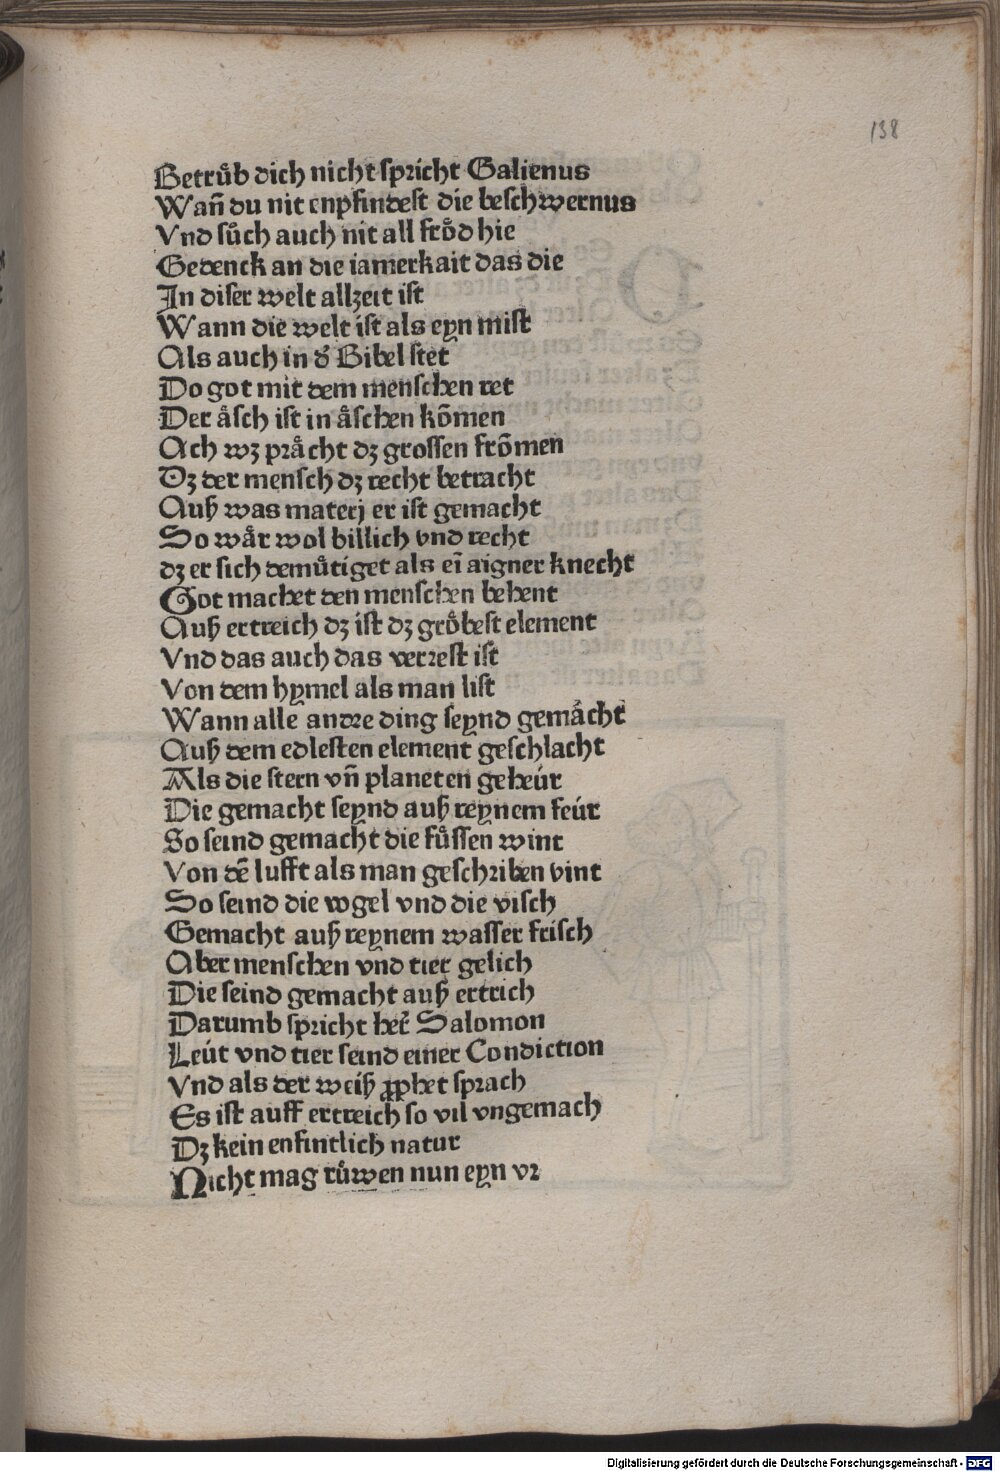 138
Betruͦb dich nicht spricht Galienus
Wañ du nit enpfindest die beschwernus
Vnd suͦch auch nit all froͤd hie
Gedenck an die iamerkait das die
In diser welt allzeit ist
Wann die welt ist als eyn mist
Als auch in dˀ Bibel stet
Do got mit dem menschen ret
Der aͤsch ist in aͤschen kōmen
Ach wz praͤcht dz grossen frōmen
Dz der mensch dz recht betracht
Auß was materj er ist gemacht
So waͤr wol billich vnd recht
dz er sich demuͤtiget als eī aigner knecht
Got machet den menschen behent
Auß ertreich dz ist dz groͤbest element
Vnd das auch das verrest ist
Von dem hymel als man list
Wann alle andre ding seynd gemaͤcht
Auß dem edlesten element geschlacht
Als die stern vñ planeten geheúr
Die gemacht seynd auß reynem feúr
So seind gemacht die fuͤssen wint
Von dē lufft als man geschriben vint
So seind die vogel vnd die visch
Gemacht auß reynem wasser frisch
Aber menschen vnd tier gelich
Die seind gemacht auß ertrich
Darumb spricht her̃ Salomon
Leút vnd tier seind einer Condiction
Vnd als der weiß ꝓphet sprach
Es ist auff ertreich so vil vngemach
Dz kein enfintlich natur
Nicht mag ruͦwen nun eyn vr
Digitalisierung gefördert durch die Deutsche Forschungsgemeinschaft - DFG